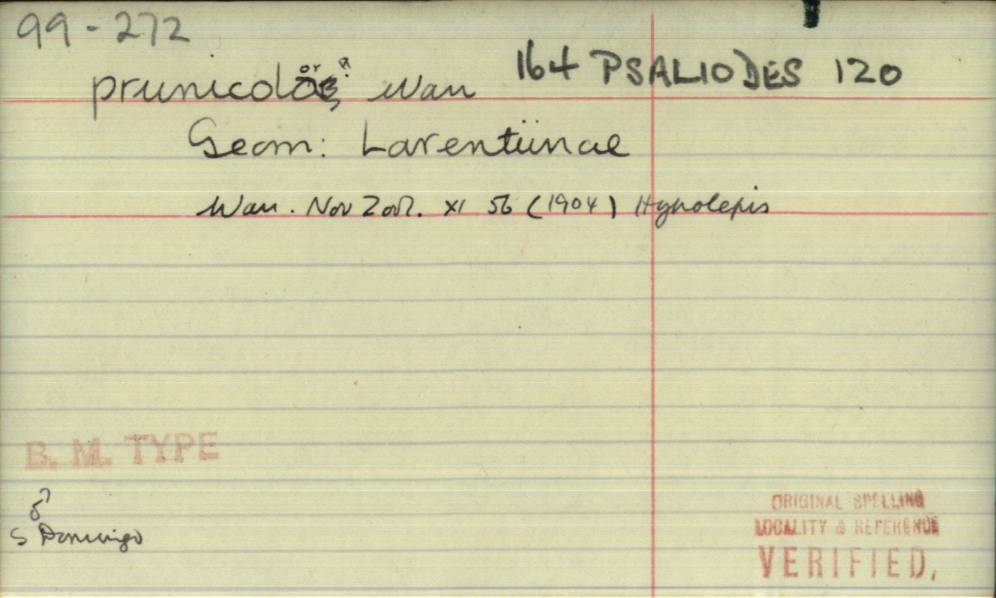 99-272
prunicolor Warr 164 PSALIODES 120
Geom: Larentiinae
Warr. Nov Zool. xi 56 (1904) Hypolepis
B. M. TYPE
♂
S Domingo
ORIGINAL SPELLING
LOCALITY & REFERENCE
VERIFIED.